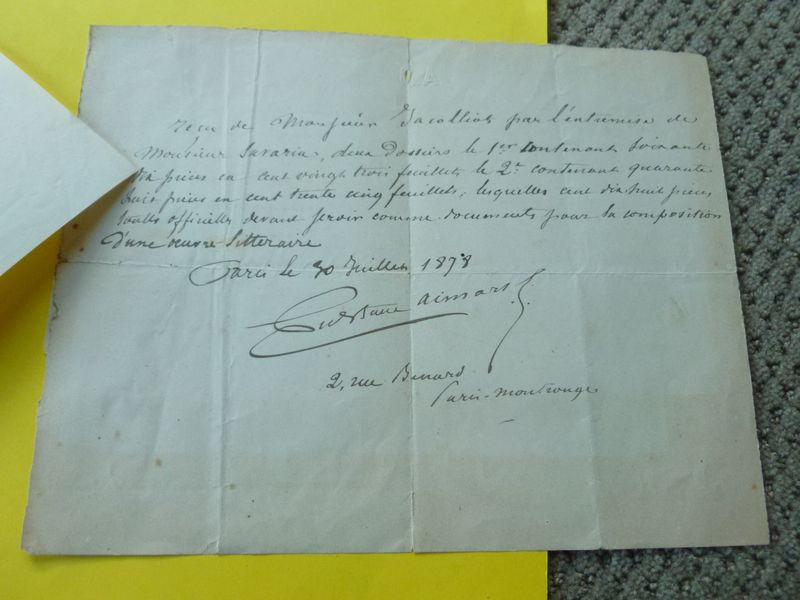 reçu de Monsieur Jacolliot par l'entremise de
Monsieur Savaria, deux dossiers le 1er contenant Soixante
dix pièces en cent vingt trois feuillets le 2e contenant quarante
huit pièces en cent trente cinq feuillets, lesquelles cent dix huit pièces
toutes officielles devant servir comme documents pour la composition
d'une œuvre littéraire
Paris le 30 Juillet 1878
Gustave Aimard
2, rue Benard
Paris-Montrouge